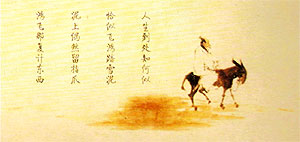 人生到处知何似
恰似飞鸿踏雪泥
泥上偶然留指爪
鸿飞那复计东西